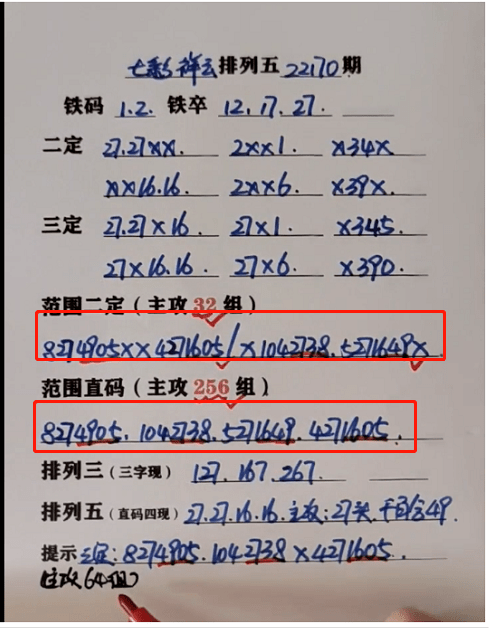 七彩祥云排列五22170期
铁码 1.2. 铁卒 12.17.27.
二定 27.27××. 2××1. ×34×
××16.16. 2××6. ×39×.
三定 27.27×16. 27×1. ×345.
27×16.16. 27×6. ×390.
范围二定（主攻32组）
8274905××4271605/×1042738.5271649×.
范围直码（主攻256组）
8274905.1042738.5271649.4271605.
排列三（三字现）127.167.267.
排列五（直码四现）27.27.16.16.主攻:27头.千百含49.
提示 三定:8274905.1042738×4271605.
(主攻64组)